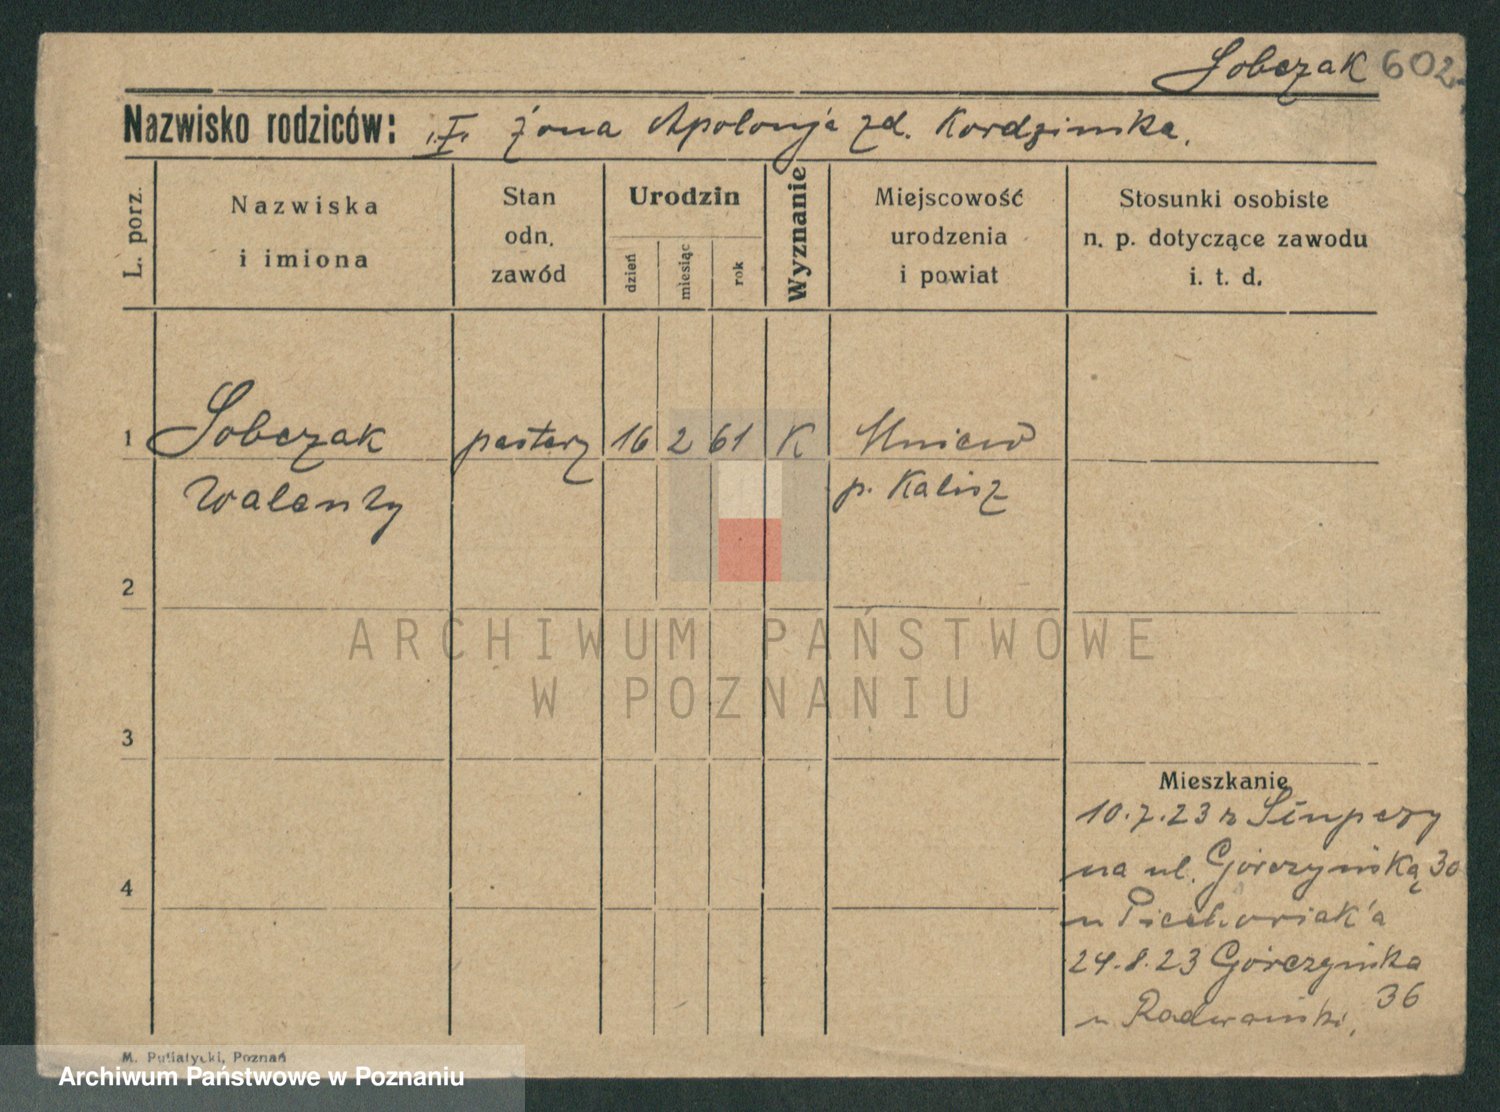 Sobczak 602
Nazwisko rodziców: I. żona Apolonja zd. Kordzińska.
L. porz.
Nazwiska
i imiona
Stan
odn.
zawód
Urodzin
dzień
miesiąc
rok
Wyznanie
Miejscowość
urodzenia
i powiat
Stosunki osobiste
n. p. dotyczące zawodu
i. t. d.
1 Sobczak pasterz 16 2 61 K
Walenty p. Kalisz
2
3
4
Mieszkanie
10.7.23 z
na ul. Górczyńską 30
u Piechowiak'a
24.8.23 Górczyńska
36
u Radwański,
M. Putiatycki, Poznań
ARCHIWUM PAŃSTWOWE
W POZNANIU
Archiwum Państwowe w Poznaniu